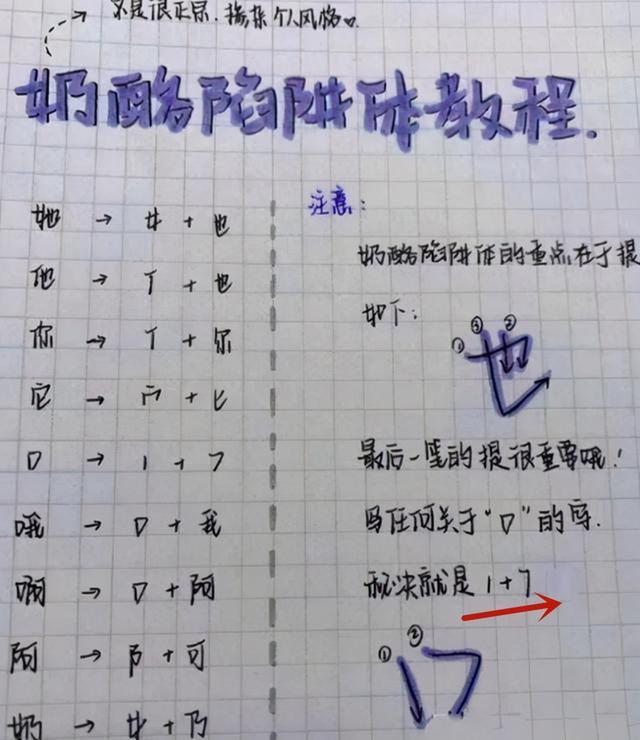 不是很正宗.掺杂个人风格
奶酪陷阱体教程.
她 → 女 + 也
他 → 亻 + 也
你 → 亻 + 尔
它 → 宀 + 匕
口 → 1 + 7
哦 → 口 + 我
啊 → 口 + 阿
阿 → 阝 + 可
奶 → 女 + 乃
注意:
奶酪陷阱体的重点在于提
如下:
① ③ ②
也
最后一笔的提很重要哦!
写任何关于“口”的字.
秘诀就是 1 + 7
① ②
口